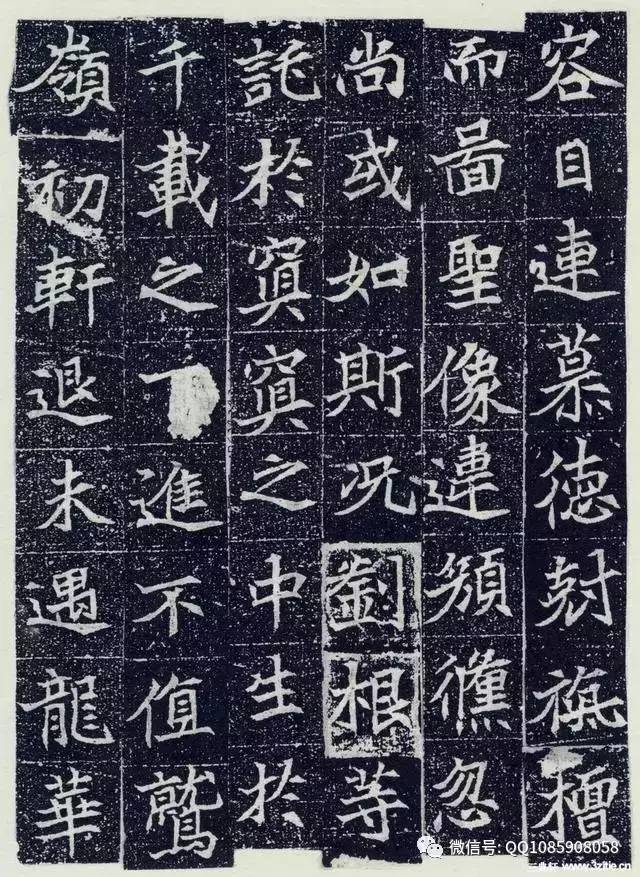 容目連慕德尅旃檀
而啚聖像違顏儵忽
尚或如斯况劉根等
託於冥冥之中生於
千載之下進不值鷲
嶺初軒退未遇龍華
微信号: QQ1085908058
www.3zitie.cn